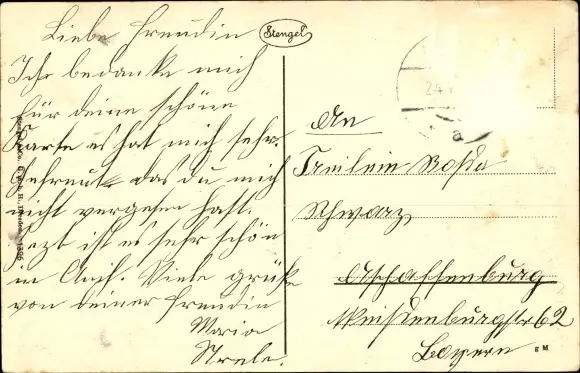 Liebe Freudin
Stengel
Ich bedanke mich
für deine schöne
Karte es hat mich sehr
gefreut das du mich
nicht vergesen hast.
jezt ist es sehr schön
in Viele grüße
von deiner freundin
Maria
An
Freilein Rosa
Schwarz
Aschaffenburg
Weißenburgstr 62
Bayern
24
a